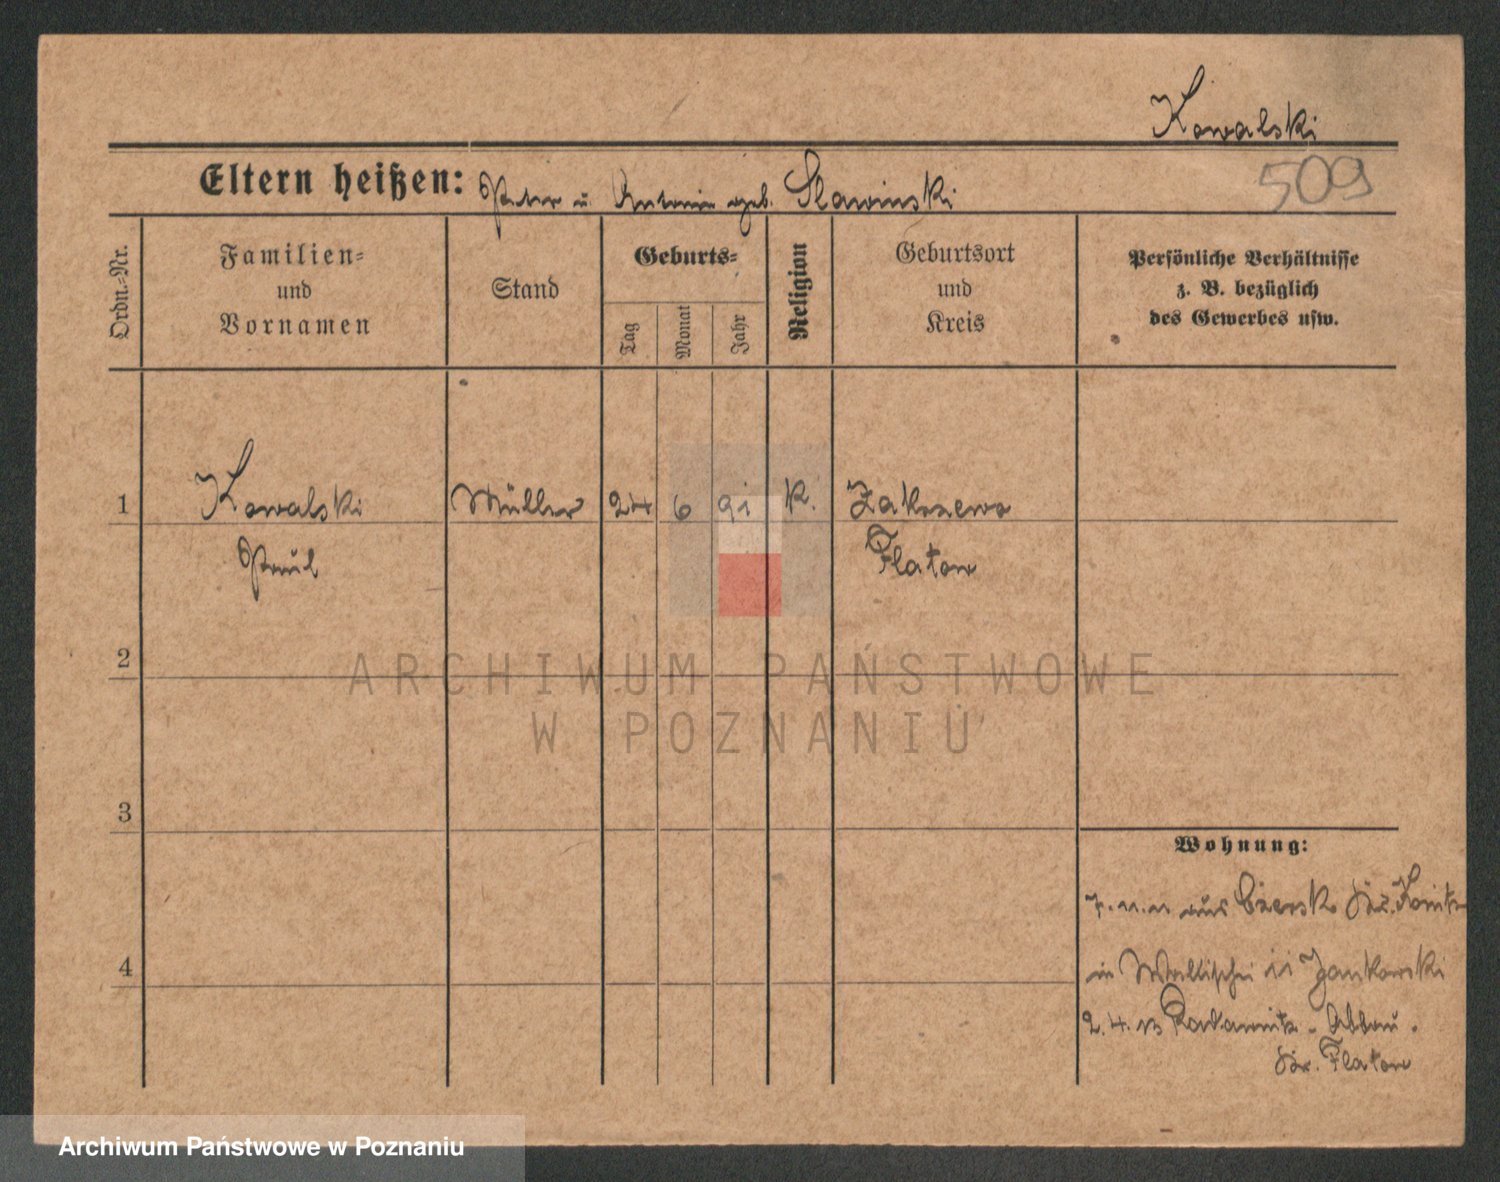 Kowalski
509
Eltern heißen: Peter u. Antonie geb. Slawinski
Ordn.-Nr.
Familien-
und
Vornamen
Stand
Geburts-
Tag
Monat
Jahr
Religion
Geburtsort
und
Kreis
Persönliche Verhältnisse
z. B. bezüglich
des Gewerbes usw.
1 Kowalski Müller 24 6 91 k. Zakrzewo
Paul Flatow
2
ARCHIWUM PAŃSTWOWE
W POZNANIU
3
Wohnung:
7.11.11 aus Czersk Kr. Konitz
4
in Wallischei 11 Jankowski
2.4.13 Radawnitz - Abbau.
Kr. Flatow
Archiwum Państwowe w Poznaniu